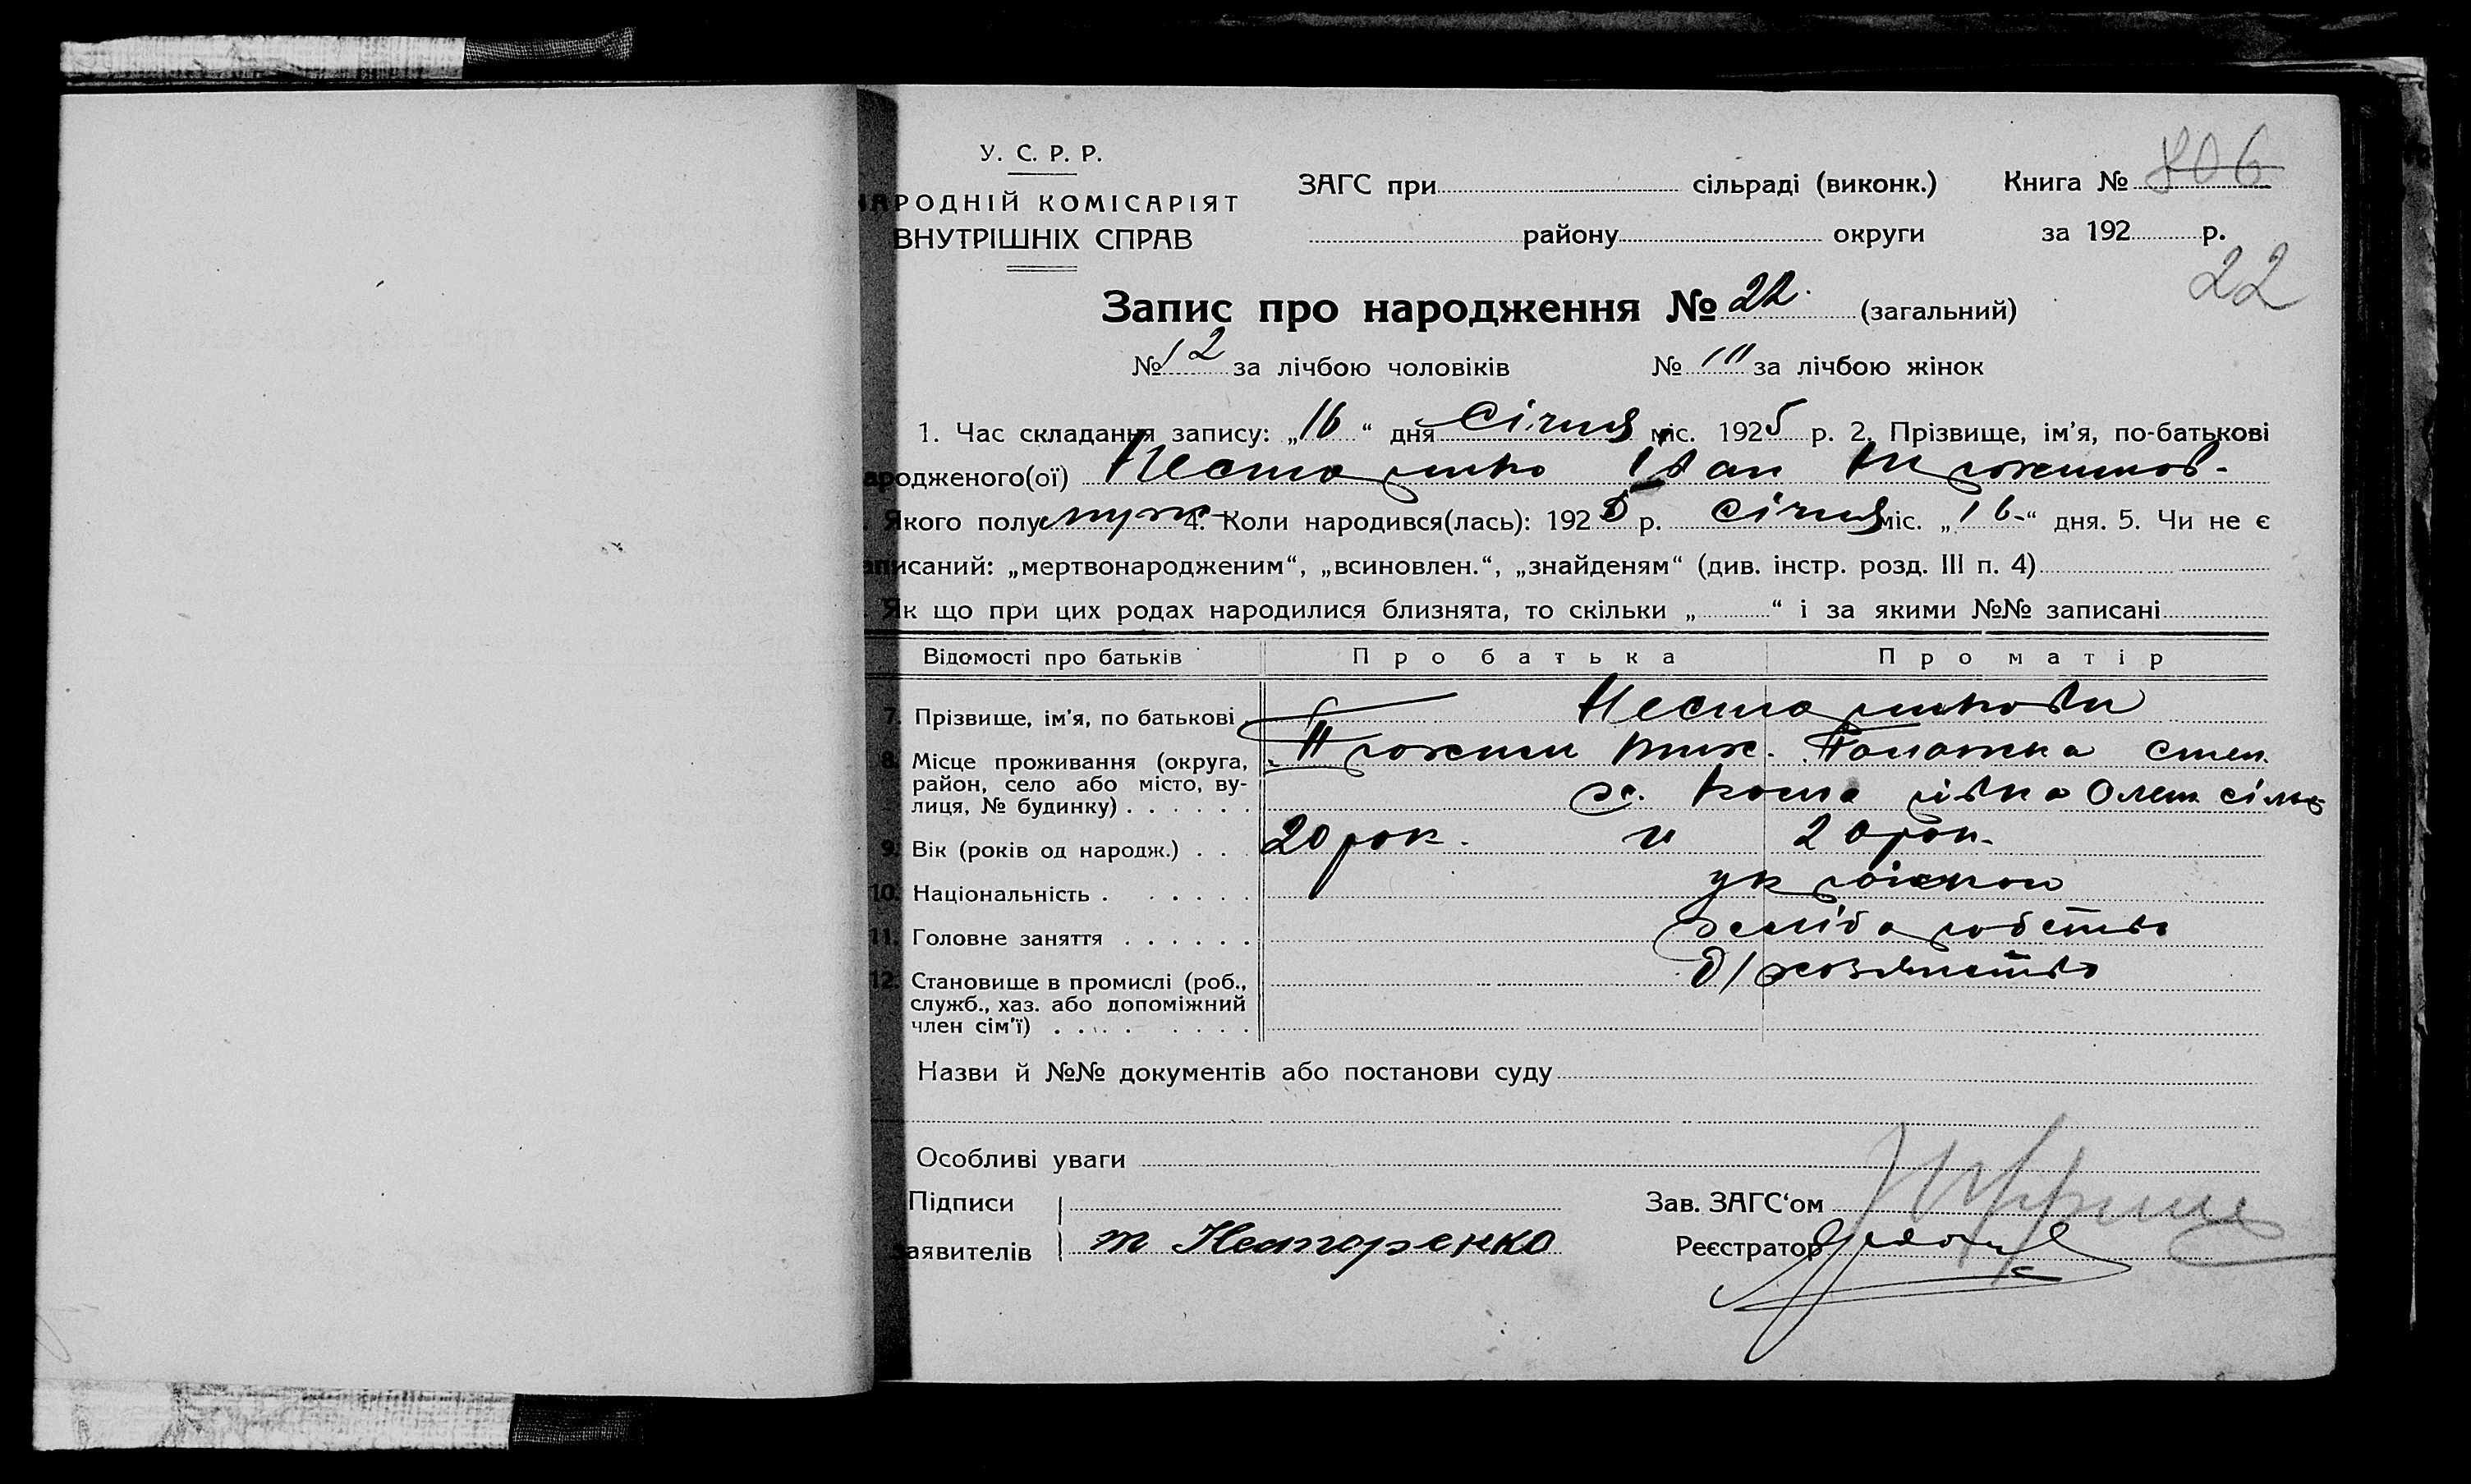 У. С. Р. Р.
НАРОДНІЙ КОМІСАРІЯТ
ВНУТРІШНІХ СПРАВ
ЗАГС при сільраді (виконк.) Книга № 806
району округи за 192 р.
22
Запис про народження № 22. (загальний)
№ 12 за лічбою чоловіків № 10 за лічбою жінок
1. Час складання запису: „16“ дня Січня міс. 1925 р. 2. Прізвище, ім’я, по-батькові
народженого(ої) Нестеренко Іван
Якого полу муж 4. Коли народився(лась): 1925 р. січня міс. „16-“ дня. 5. Чи не є
записаний: „мертвонародженим“, „всиновлен.“, „знайденям“ (див. інстр. розд. III п. 4)
Як що при цих родах народилися близнята, то скільки „ “ і за якими №№ записані
Відомості про батьків Про батька Про матір
7. Прізвище, ім’я, по батькові
8. Місце проживання (округа,
район, село або місто, ву-
лиця, № будинку) х. Олеш. сільр
9. Вік (років од народж.) 20 рок. и 20 рок.
10. Національність українці
11. Головне заняття хліборобство
12. Становище в промислі (роб.,
служб., хаз. або допоміжний
член сім’ї)
Назви й №№ документів або постанови суду
Особливі уваги
Підписи
заявителів т Нестеренко
Зав. ЗАГС‘ом
Реєстратор